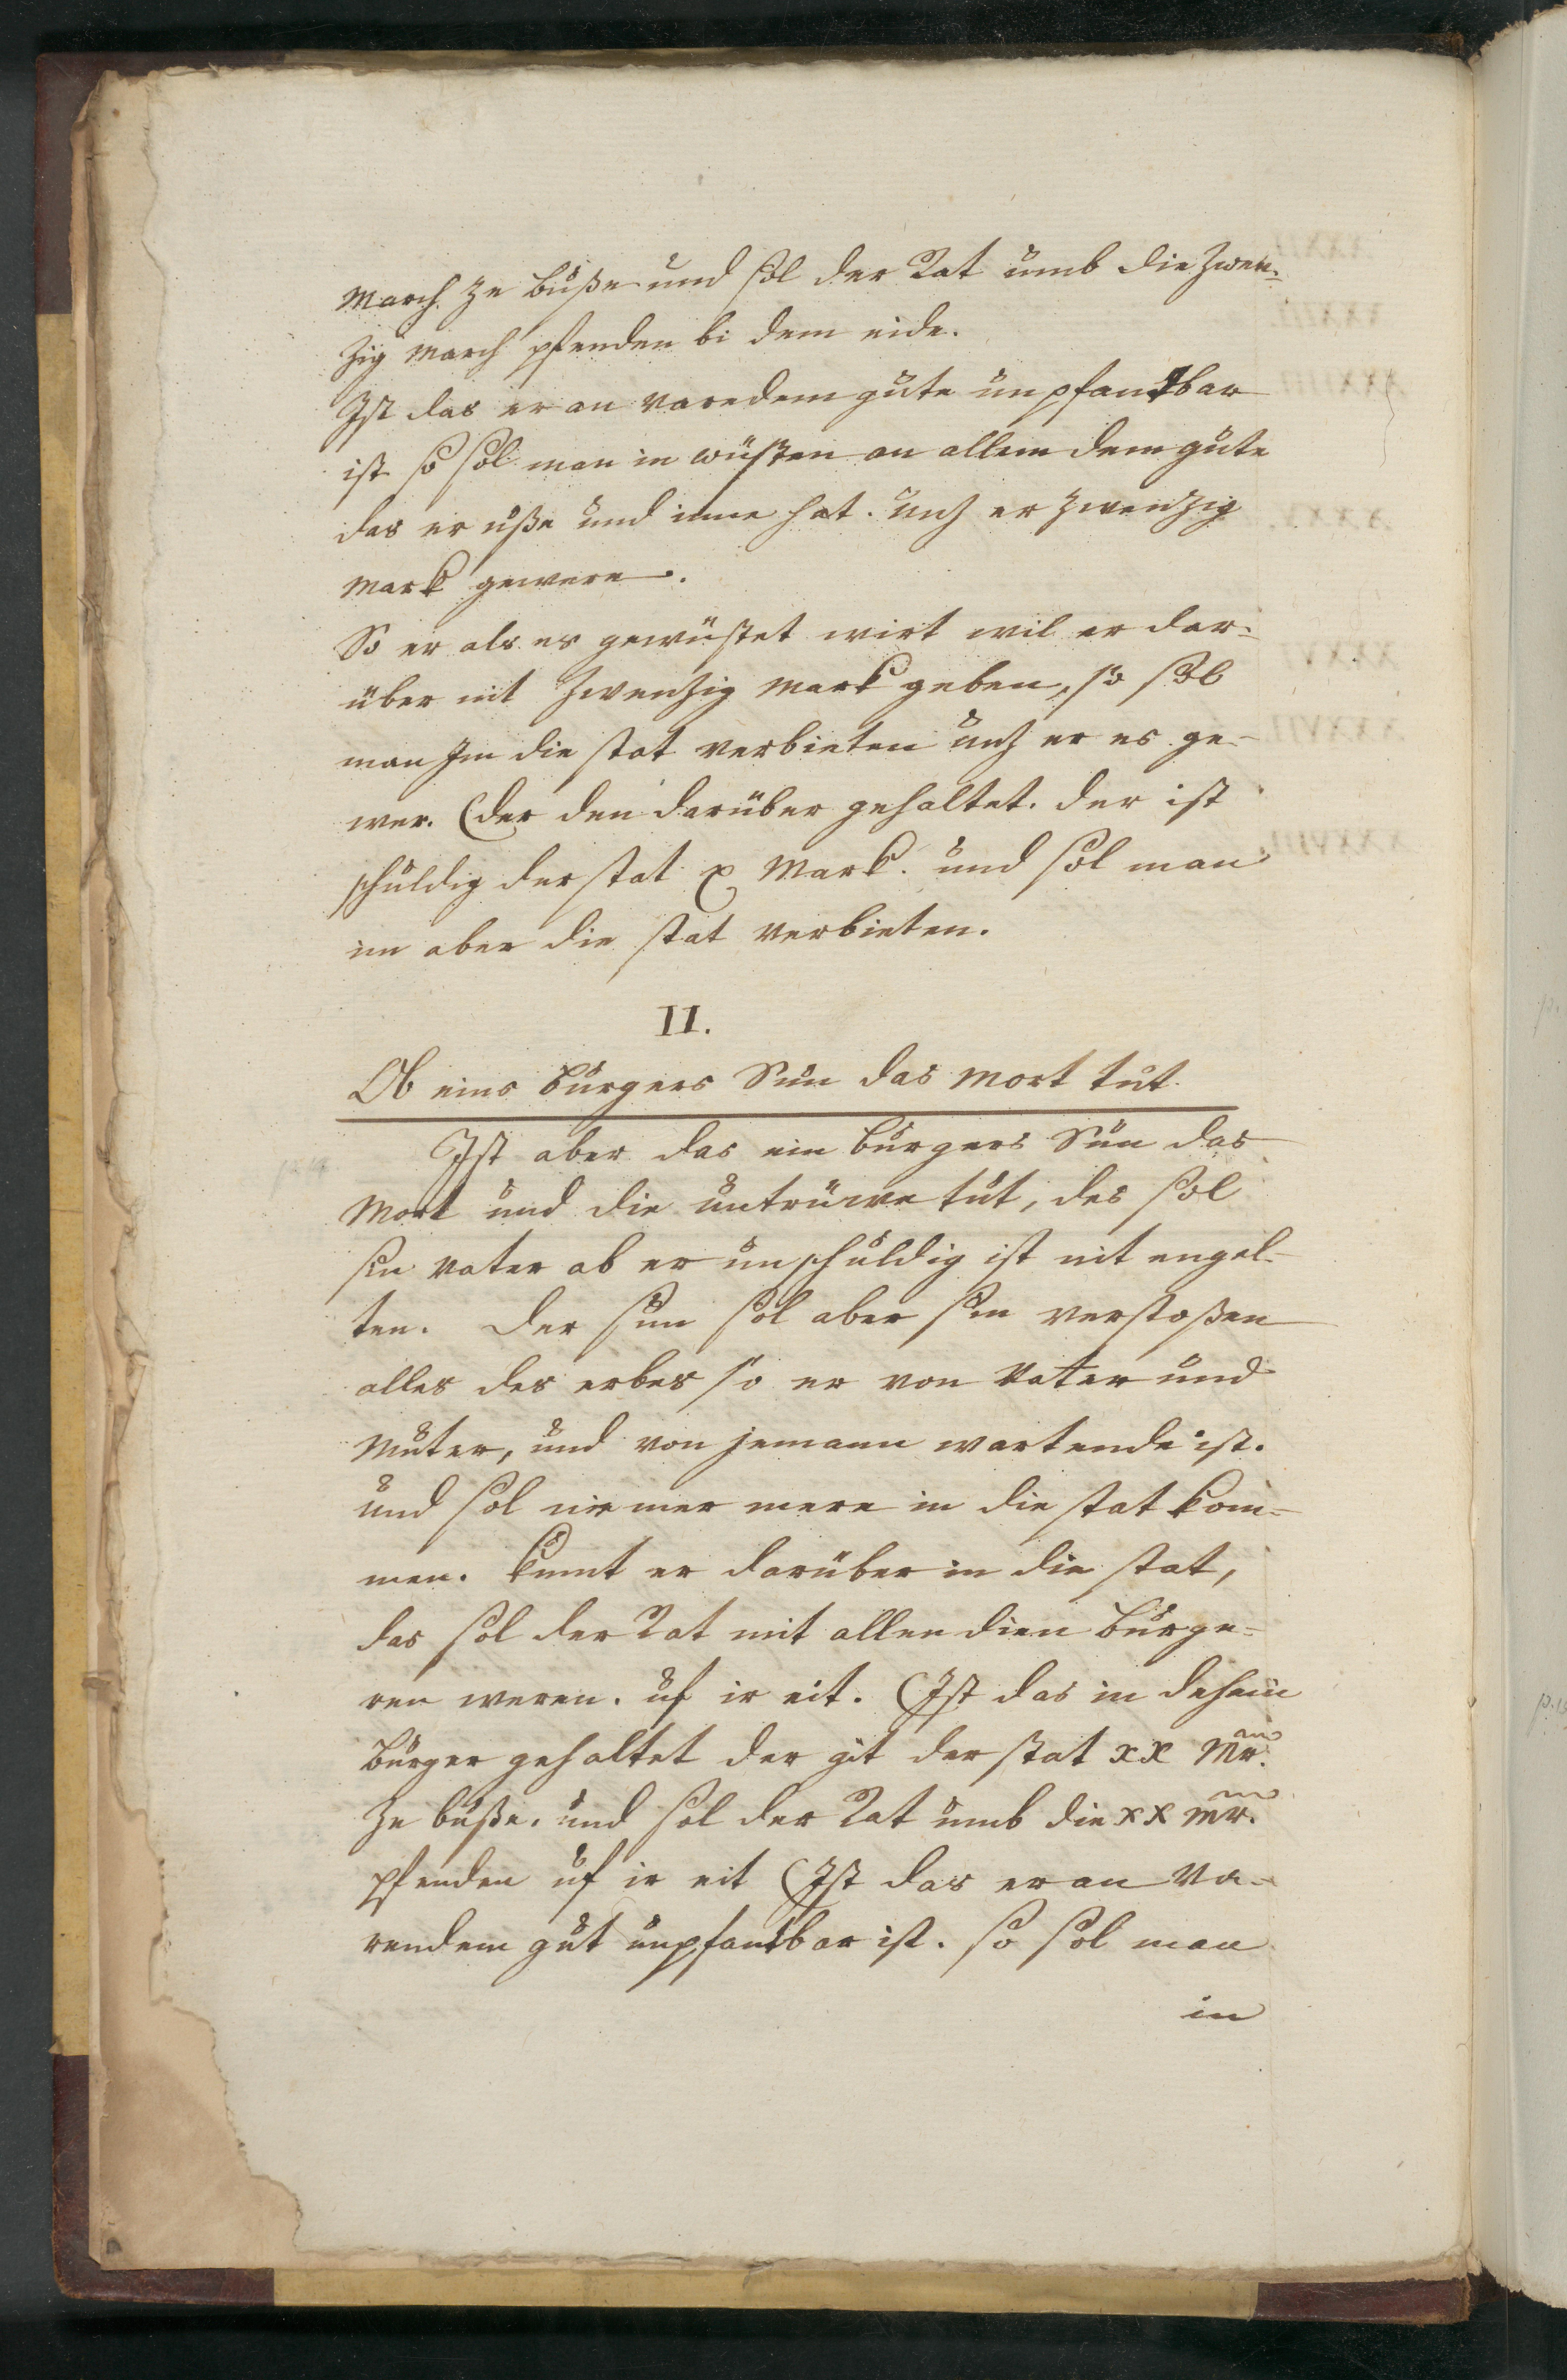 March ze buͦße und sol der Rat umb die zwen-
zig March pfenden bi dem eide.
Ist das er an varedem gute unpfandbar
ist so sol man in wüsten an allem dem gute
das er uße und inne hat. untz er zwenzig
Mark gewere.
So er als es gewüstet wirt wil er dar-
über nit zwenzig Mark geben, so sol
man Im die stat verbieten untz er es ge-
wer. (der den darüber gehaltet. der ist
schuldig der stat x Mark. und sol man
im aber die stat verbieten.
II.
Ob eins burgers Sun das Mort tut.
Ist aber das ein burgers Sun das
Mort und die untrüwe tut, des sol
sin vater ob er unschuldig ist nit engel-
ten. Der sun sol aber sin verstoßen
alles des erbes so er von Vater und
Muͦter, und von jemann wartende ist.
und sol niemer mere in die stat kom-
men. kumt er darüber in die stat,
das sol der Rat mit allen dien burge-
ren weren. uf ir eit. (Ist das in dehein
burger gehaltet der git der stat xx Mr.
ze buͦße. und sol der Rat umb die xx Mr.
pfenden uf ir eit (Ist das er an Va-
rendem guͦt unpfandbar ist. so sol man
in